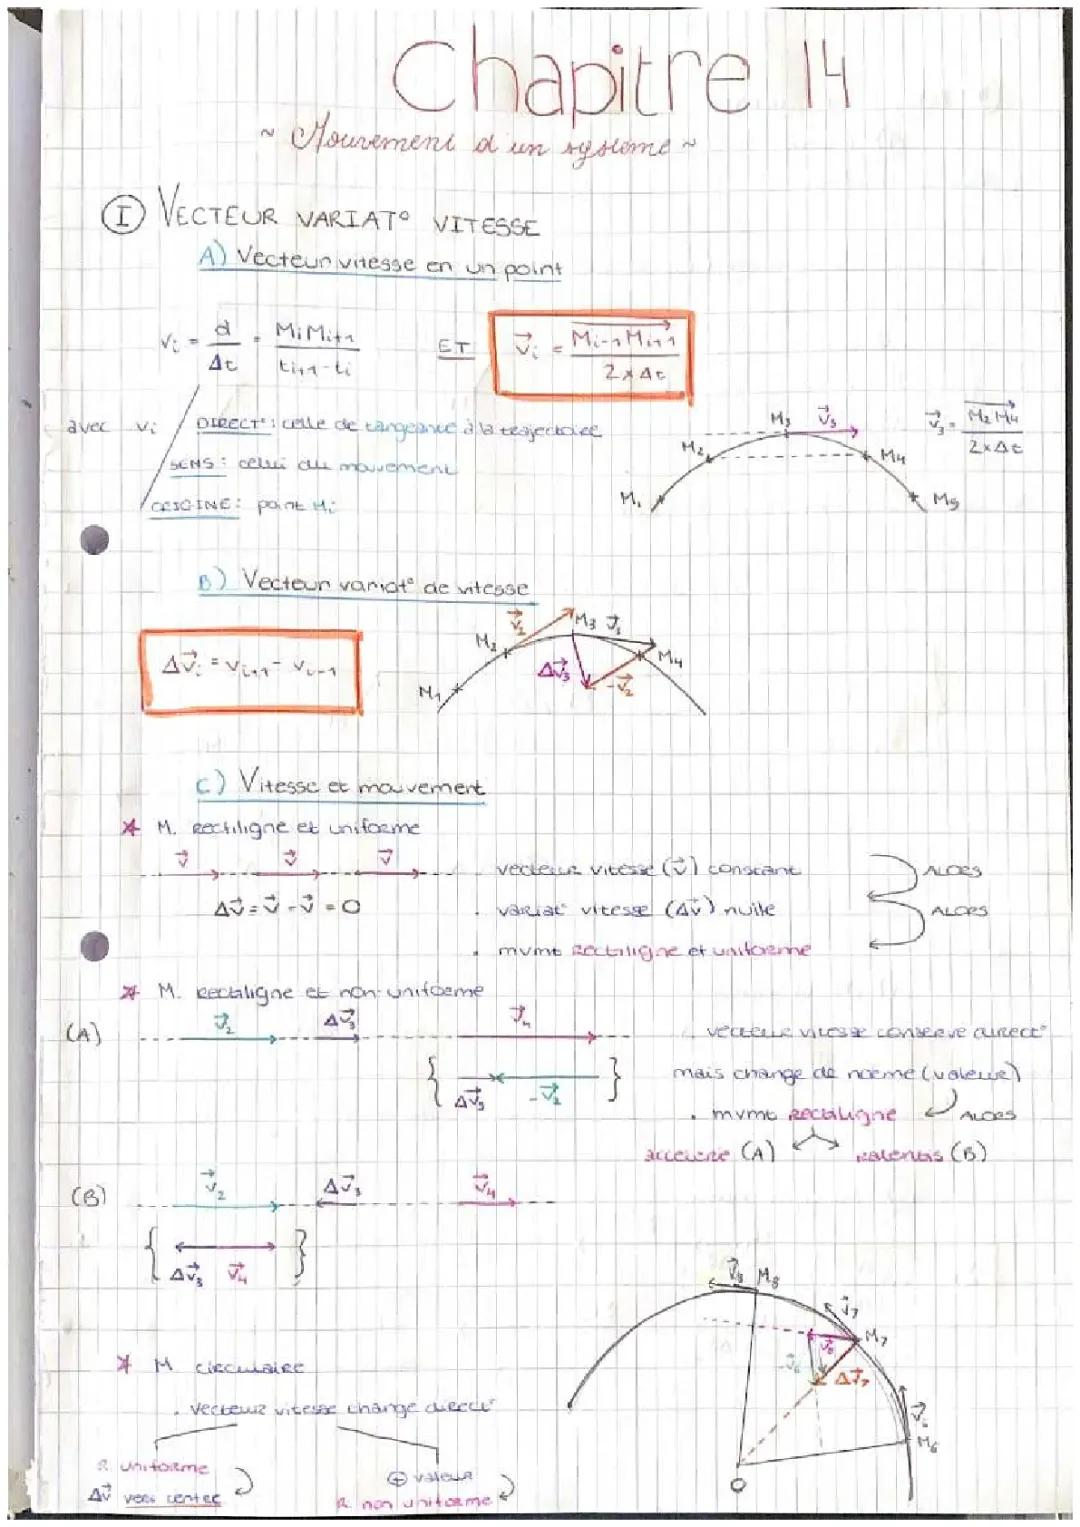 Chapitre 14
~ Mouvement d'un système ~
I VECTEUR VARIAT° VITESSE
A) Vecteur vitesse en un point
Vi = d/Δt = MiMi+1/ti+1-ti ET V⃗i = Mi-1Mi+1/2×Δt
avec Vi
DIRECT° : celle de tangeance à la trajectoire
SENS : celui du mouvement
ORIGINE : point Mi
M1 M2 M3 V⃗3 M4 M5
V⃗3 = M2M4/2×Δt
B) Vecteur variat° de vitesse
ΔV⃗i = Vi+1 - Vi-1
M1 M2 V⃗2 M3 M4 ΔV⃗3 -V⃗2
C) Vitesse et mouvement
* M. Rectiligne et uniforme
V⃗ V⃗ V⃗
ΔV⃗ = V⃗ - V⃗ = 0
. vecteur vitesse (V⃗) constant
ALORS
. variat° vitesse (ΔV⃗) nulle
ALORS
. mvmt rectiligne et uniforme
* M. Rectiligne et non-uniforme
(A) V⃗2 ΔV⃗3 V⃗4
{ ΔV⃗3 -V⃗2 }
. vecteur vitesse conserve direct°
mais change de norme (valeur)
. mvmt Rectiligne ALORS
accéléré (A) ralentis (B)
(B) V⃗2 ΔV⃗3 V⃗4
{ ΔV⃗3 V⃗4 }
* M circulaire
. Vecteur vitesse change direct°
R uniforme
ΔV⃗ vers centre
⊕ valeur
R non uniforme
V⃗8 M8 V⃗7 M7 V⃗6 -V⃗6 ΔV⃗7 M6
O